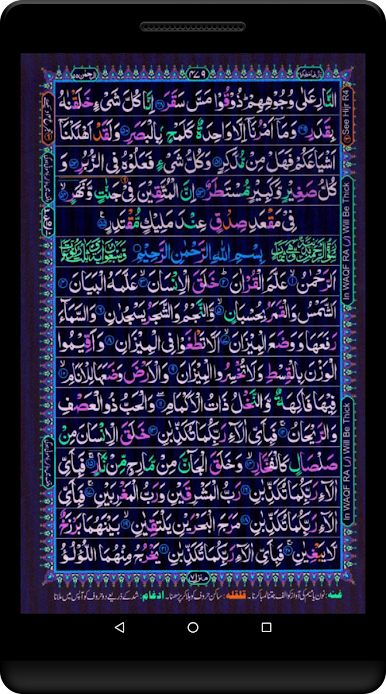 النَّارِ عَلٰى وُجُوْهِهِمْ ذُوْقُوْا مَسَّ سَقَرَ ۝۴۸ اِنَّا كُلَّ شَیْءٍ خَلَقْنٰهُ
بِقَدَرٍ ۝۴۹ وَمَاۤ اَمْرُنَاۤ اِلَّا وَاحِدَةٌ كَلَمْحٍۭ بِالْبَصَرِ ۝۵۰ وَلَقَدْ اَهْلَكْنَاۤ
اَشْیَاعَكُمْ فَهَلْ مِنْ مُّدَّكِرٍ ۝۵۱ وَكُلُّ شَیْءٍ فَعَلُوْهُ فِی الزُّبُرِ ۝۵۲ وَ
كُلُّ صَغِیْرٍ وَّكَبِیْرٍ مُّسْتَطَرٌ ۝۵۳ اِنَّ الْمُتَّقِیْنَ فِیْ جَنّٰتٍ وَّنَهَرٍ ۝۵۴
فِیْ مَقْعَدِ صِدْقٍ عِنْدَ مَلِیْكٍ مُّقْتَدِرٍ ۝۵۵
بِسْمِ اللهِ الرَّحْمٰنِ الرَّحِیْمِ
اَلرَّحْمٰنُ ۝۱ عَلَّمَ الْقُرْاٰنَ ۝۲ خَلَقَ الْاِنْسَانَ ۝۳ عَلَّمَهُ الْبَیَانَ ۝۴
اَلشَّمْسُ وَالْقَمَرُ بِحُسْبَانٍ ۝۵ وَّالنَّجْمُ وَالشَّجَرُ یَسْجُدٰنِ ۝۶ وَالسَّمَآءَ
رَفَعَهَا وَوَضَعَ الْمِیْزَانَ ۝۷ اَلَّا تَطْغَوْا فِی الْمِیْزَانِ ۝۸ وَاَقِیْمُوا
الْوَزْنَ بِالْقِسْطِ وَلَا تُخْسِرُوا الْمِیْزَانَ ۝۹ وَالْاَرْضَ وَضَعَهَا لِلْاَنَامِ ۝۱۰
فِیْهَا فَاكِهَةٌ وَّالنَّخْلُ ذَاتُ الْاَكْمَامِ ۝۱۱ وَالْحَبُّ ذُو الْعَصْفِ
وَالرَّیْحَانُ ۝۱۲ فَبِاَیِّ اٰلَآءِ رَبِّكُمَا تُكَذِّبٰنِ ۝۱۳ خَلَقَ الْاِنْسَانَ مِنْ
صَلْصَالٍ كَالْفَخَّارِ ۝۱۴ وَخَلَقَ الْجَآنَّ مِنْ مَّارِجٍ مِّنْ نَّارٍ ۝۱۵ فَبِاَیِّ
اٰلَآءِ رَبِّكُمَا تُكَذِّبٰنِ ۝۱۶ رَبُّ الْمَشْرِقَیْنِ وَرَبُّ الْمَغْرِبَیْنِ ۝۱۷ فَبِاَیِّ
اٰلَآءِ رَبِّكُمَا تُكَذِّبٰنِ ۝۱۸ مَرَجَ الْبَحْرَیْنِ یَلْتَقِیٰنِ ۝۱۹ بَیْنَهُمَا بَرْزَخٌ
لَّا یَبْغِیٰنِ ۝۲۰ فَبِاَیِّ اٰلَآءِ رَبِّكُمَا تُكَذِّبٰنِ ۝۲۱ یَخْرُجُ مِنْهُمَا اللُّؤْلُؤُ
See Hijr R4
In WAQF RA (ر) Will Be Thick
In WAQF RA (ر) Will Be Thick